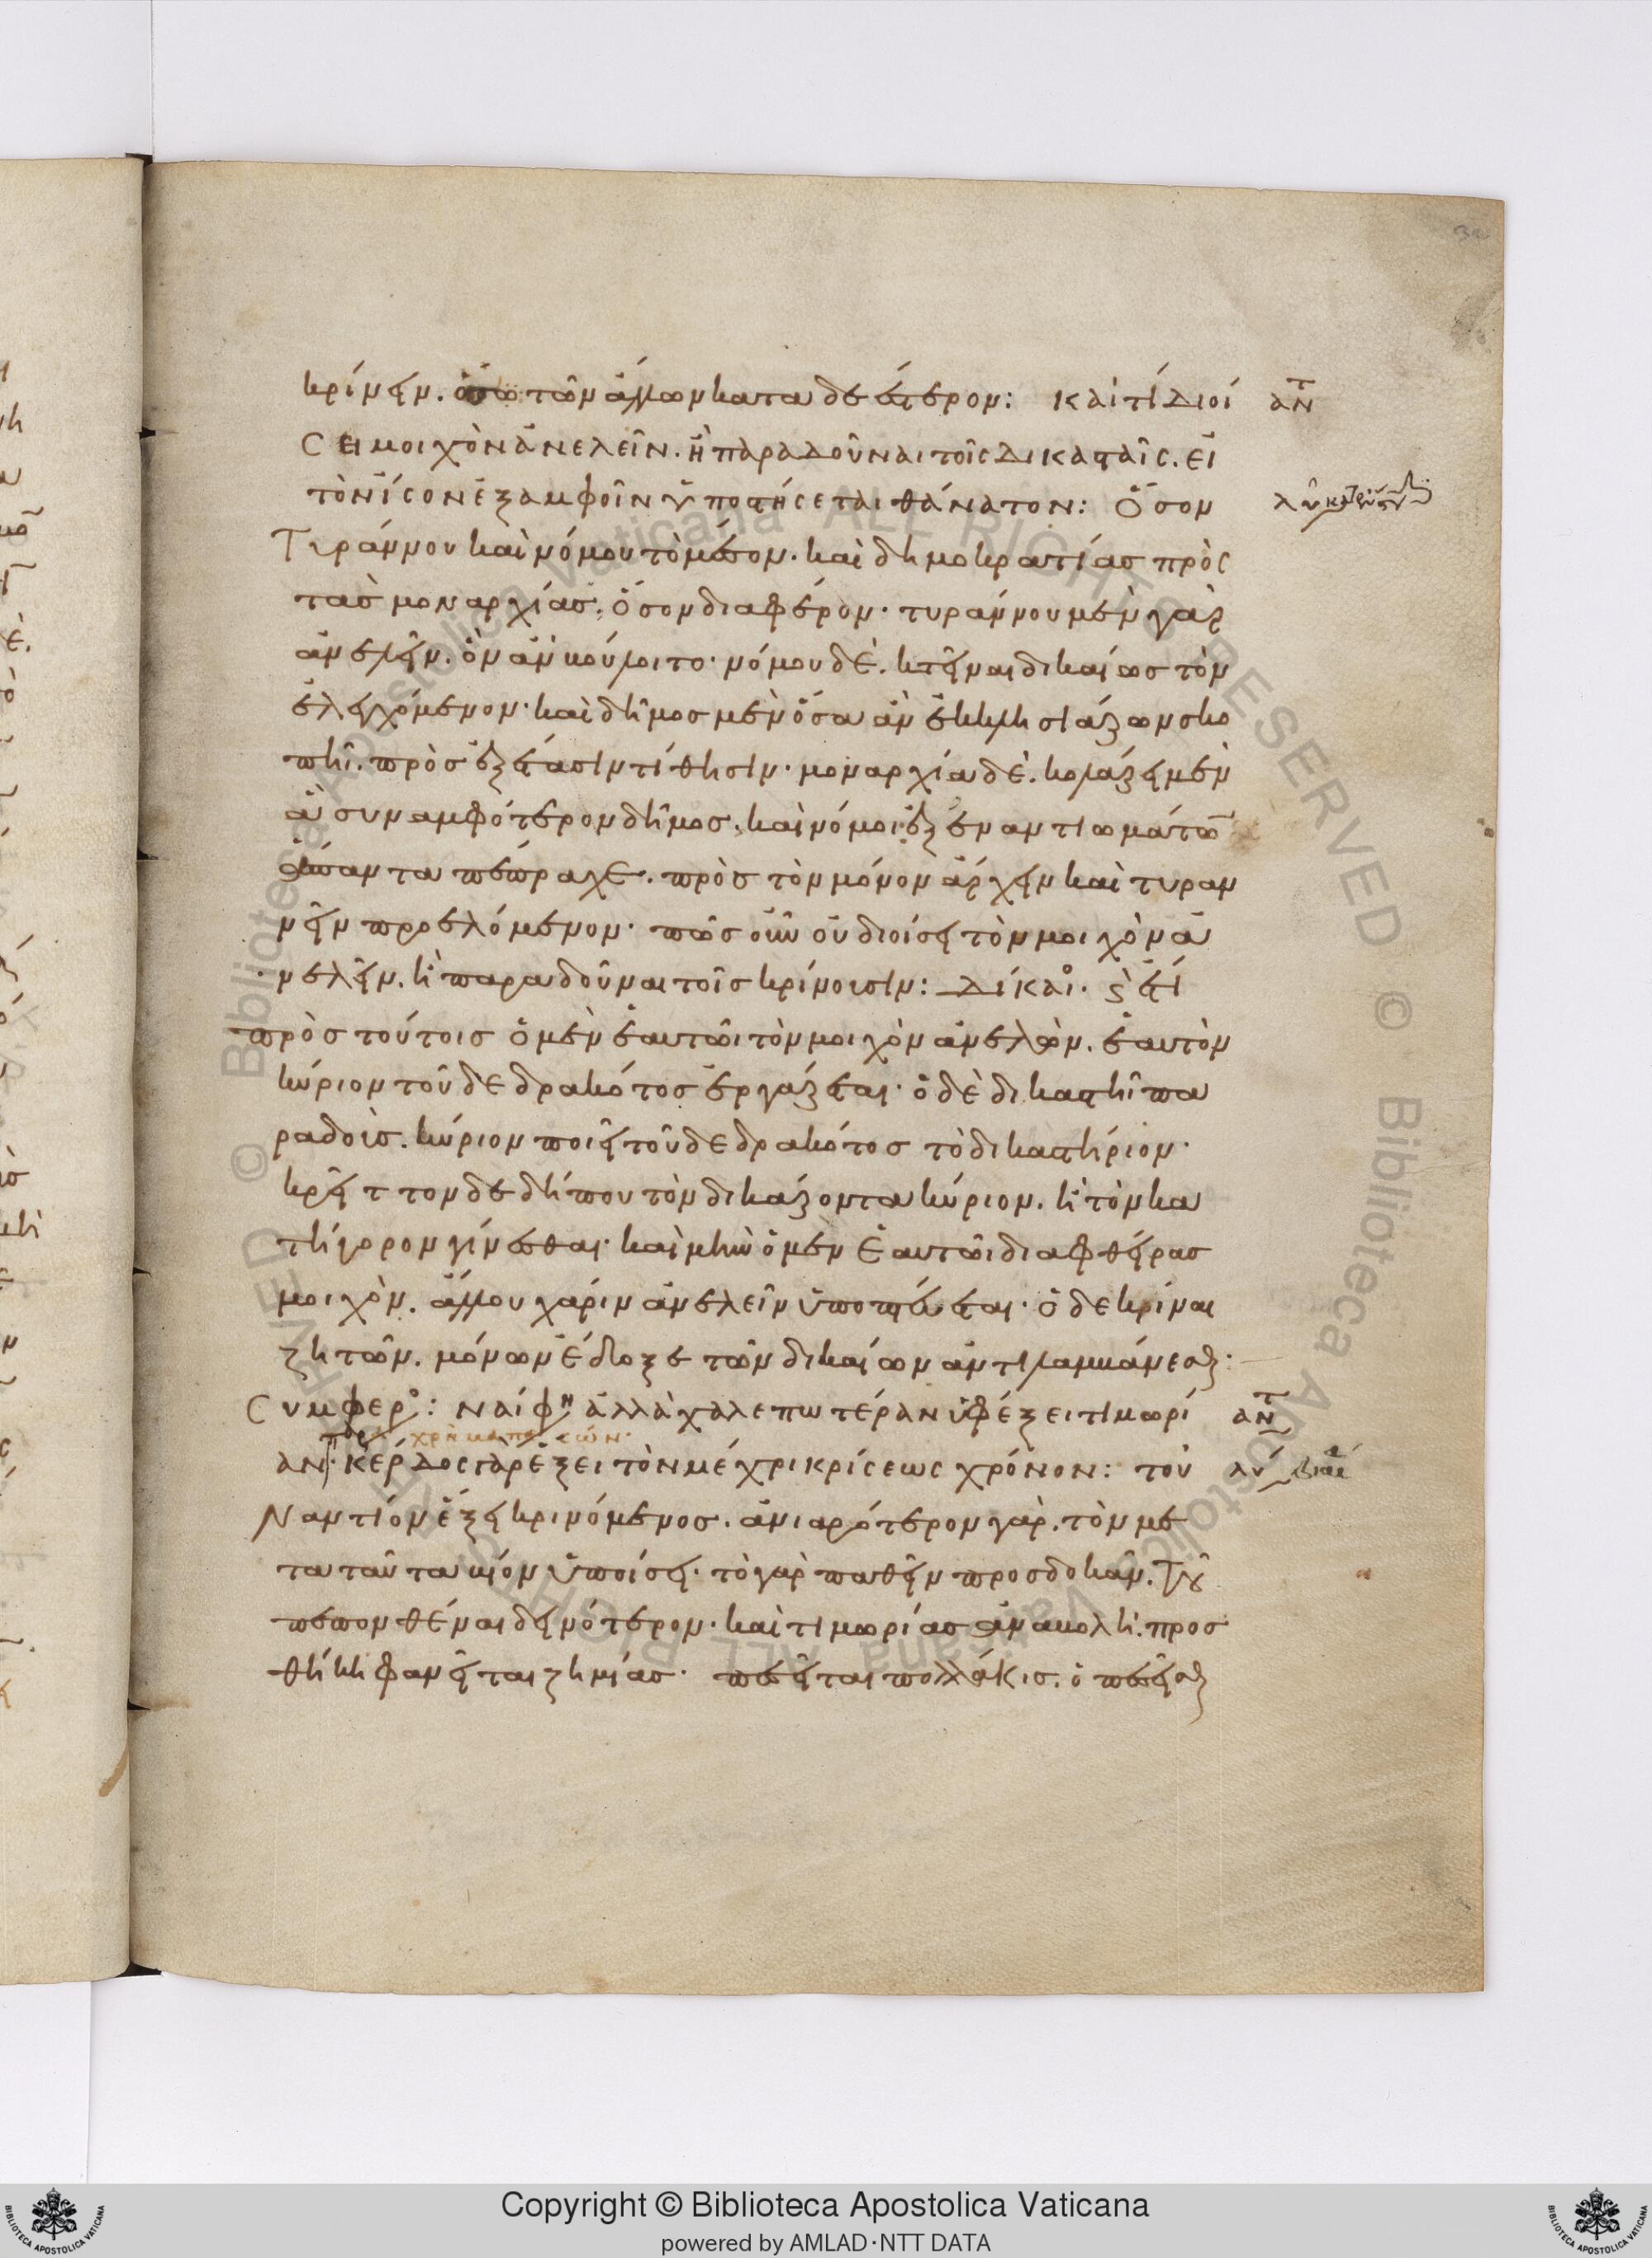 κρίνειν. ὅσω τῶν ἄλλων καταδεέστερον: καὶ τί διοί ἀντ
σει μοιχὸν ἀνελεῖν. ἢ παραδοῦναι τοῖς δικασταῖς. εἰ
τὸν ἴσον ἐξ ἀμφοῖν ὑποστήσεται θάνατον: Ὅσον
Τυράννου καὶ νόμου τὸ μέσον. καὶ δημοκρατίας πρὸς
τὰς μοναρχίας. ὅσον διαφέρον. τυράννου μὲν γὰρ
ἀνελεῖν. ὃν ἂν βούλοιτο. νόμου δὲ. κτεῖναι δικαίως τὸν
ἐλεγχόμενον. καὶ δῆμος μὲν ὅσα ἂν ἐκκλησιάζων σκο
πῆι. πρὸς ἐξέτασιν τίθησιν. μοναρχία δὲ. κολάζει μὲν
ἃ συναμφότερον δῆμος. καὶ νόμοι. ἐξ ἐναντιωμάτων
ἐάσαντα πέπραχε. πρὸς τὸν μόνον ἄρχειν καὶ τυραν
νεῖν προελόμενον. πῶς οὖν οὐ διοίσει τὸν μοιχὸν ἀ
νελεῖν. ἢ παραδοῦναι τοῖς κρίνουσιν: Δίκαιο. ἔτι
πρὸς τούτοις ὁ μὲν ἑαυτῶι τὸν μοιχὸν ἀνελὼν. ἑαυτὸν
κύριον τοῦ δεδρακότος ἐργάζεται. ὁ δὲ δικαστῆι πα
ραδοὺς. κύριον ποιεῖ τοῦ δεδρακότος τὸ δικαστήριον.
κρεῖττον δὲ δήπου τὸν δικάζοντα κύριον. ἢ τὸν κα
τήγορον γίνεσθαι. καὶ μὴν ὁ μὲν ἑαυτῶι διαφθείρας
μοιχὸν. ἄλλου χάριν ἀνελεῖν ὑποπτεύεται. ὁ δὲ κρίναι
ζητῶν. μόνων ἔδοξε τῶν δικαίων ἀντιλαμβάνεσθαι:
Συμφέρο: Ναί φη ἀλλὰ χαλεπωτέραν ὑφέξει τιμωρί ἀντ
αν. κέρδος γὰρ ἕξει τὸν μέχρι κρίσεως χρόνον: τοὐ λύ
Ναντίον ἕξει κρινόμενος. ἀνιαρότερον γὰρ. τὸν με
τὰ ταῦτα βίον ὑποίσει. τὸ γὰρ παθεῖν προσδοκᾶν. τοῦ
πεπονθέναι δεινότερον. καὶ τιμωρίας ἀναβολὴ. προσ
θήκη φανεῖται ζημίας. πείσεται πολλάκις. ὁ πείσεσθαι